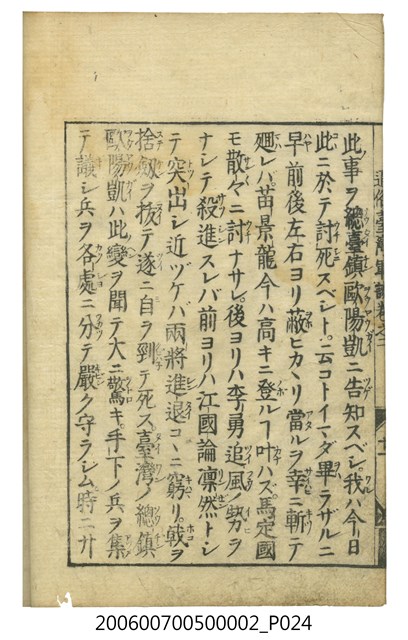 此事ヲ總臺鎮歐陽凱ニ告知スベシ我ハ今日
此ニ於テ討死スベシト云コトイマダ畢ラザルニ
早前後左右ヨリ蔽ヒカヽリ當ルヲ幸ニ斬テ
廻レバ苗景龍今ハ高キニ登ルヿ叶ハズ馬定國
モ散々ニ討ナサレ後ヨリハ李勇追風ノ勢ヲ
ナシテ殺進スレバ前ヨリハ江國論凛然トシ
テ突出シ近ヅケバ兩將進退コヽニ窮リ戟ヲ
捨劔ヲ拔テ遂ニ自ヲ剄テ死ス臺灣ノ總鎮
歐陽凱ハ此變ヲ聞テ大ニ驚キ手下ノ兵ヲ集
テ議シ兵ヲ各處ニ分テ嚴ク守ラシム時ニ廾
200600700500002_P024